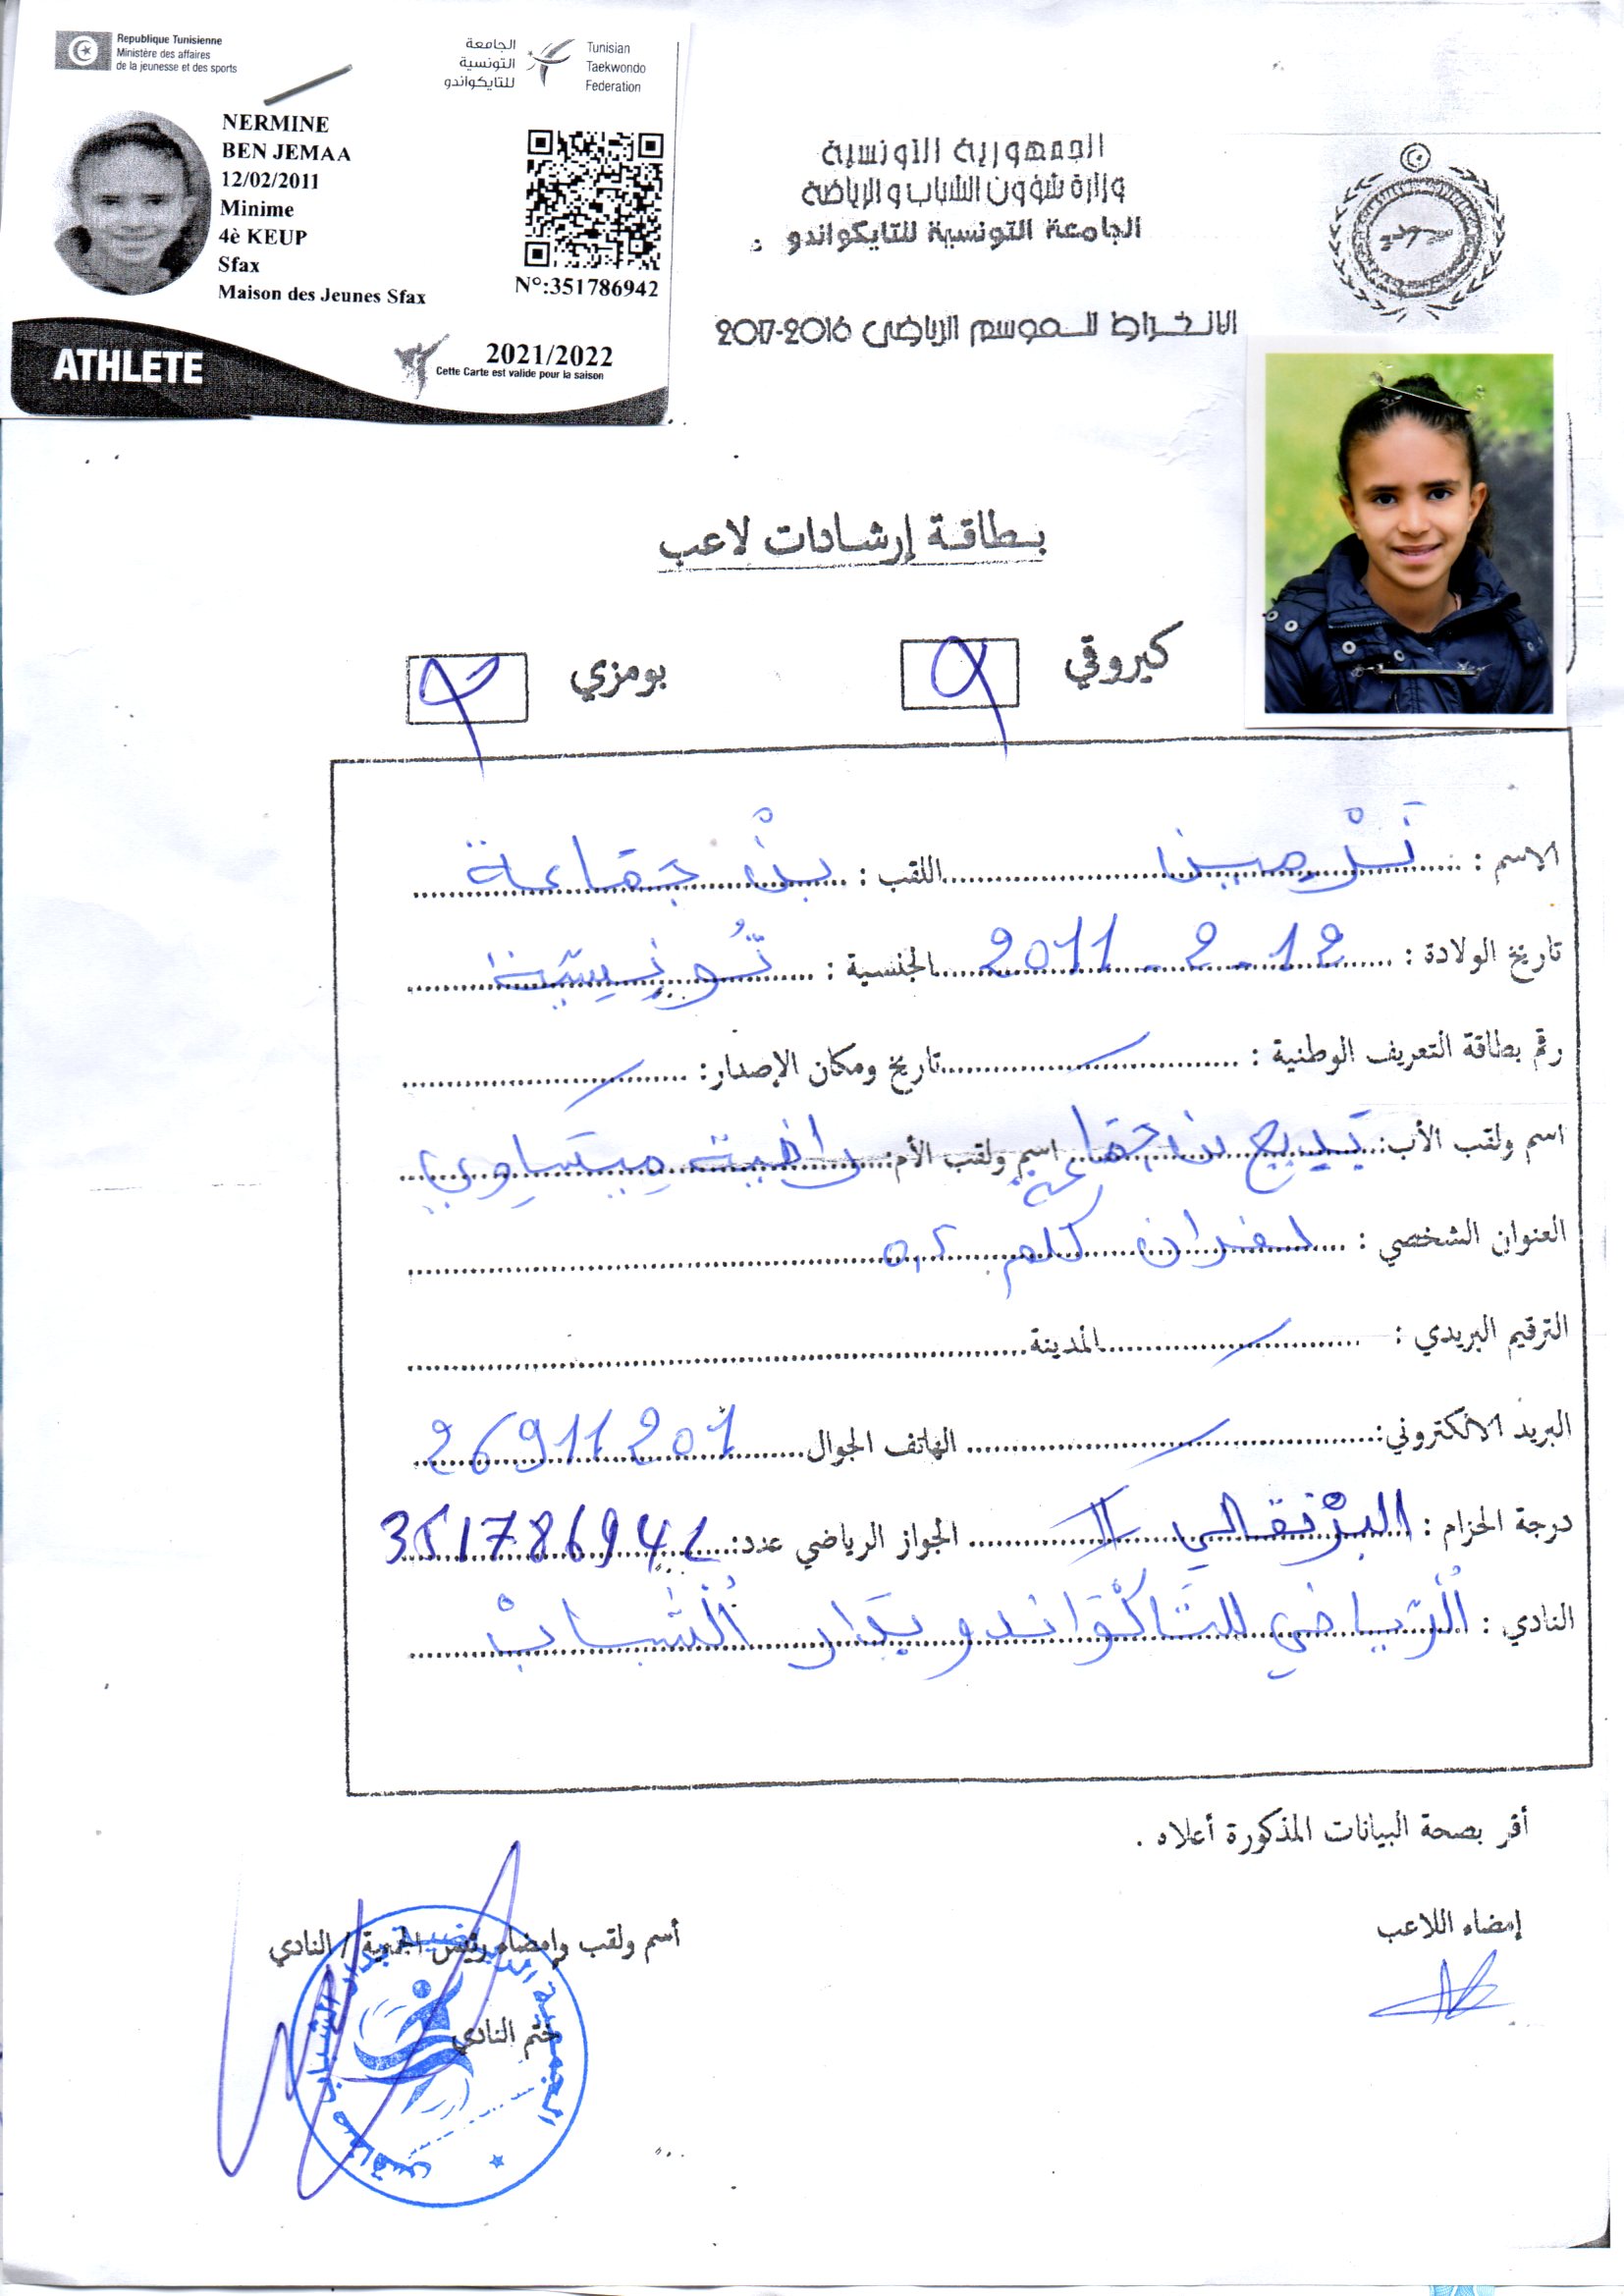 Republique Tunisienne
Ministère des affaires
de la jeunesse et des sports
الجامعة
التونسية
للتايكواندو
Tunisian
Taekwondo
Federation
NERMINE
BEN JEMAA
12/02/2011
Minime
4è KEUP
Sfax
Maison des Jeunes Sfax
N°:351786942
ATHLETE
2021/2022
Cette Carte est valide pour la saison
الجمهورية التونسية
وزارة شؤون الشباب والرياضة
الجامعة التونسية للتايكواندو
الانخراط للموسم الرياضي 2016-2017
بطاقة إرشادات لاعب
كيروقي بومزي
الاسم : نَرْمِين اللقب : بنْ جمَاعة
تاريخ الولادة : 12 - 2 - 2011 الجنسية : تُونسية
رقم بطاقة التعريف الوطنية : تاريخ ومكان الإصدار:
اسم ولقب الأب: بن جماعة اسم ولقب الأم: راضية
العنوان الشخصي : كلم
الترقيم البريدي : المدينة
البريد الالكتروني: الهاتف الجوال 26911201
درجة الحزام : البرْتقالي II الجواز الرياضي عدد: 351786942
النادي : الرّياضي للتَّاكْوَاندو بدَار الشّبابْ
أقر بصحة البيانات المذكورة أعلاه .
إمضاء اللاعب
أسم ولقب وإمضاء رئيس الجمعية / النادي
ختم النادي
الجمعية الرياضية بدار الشباب صفاقس